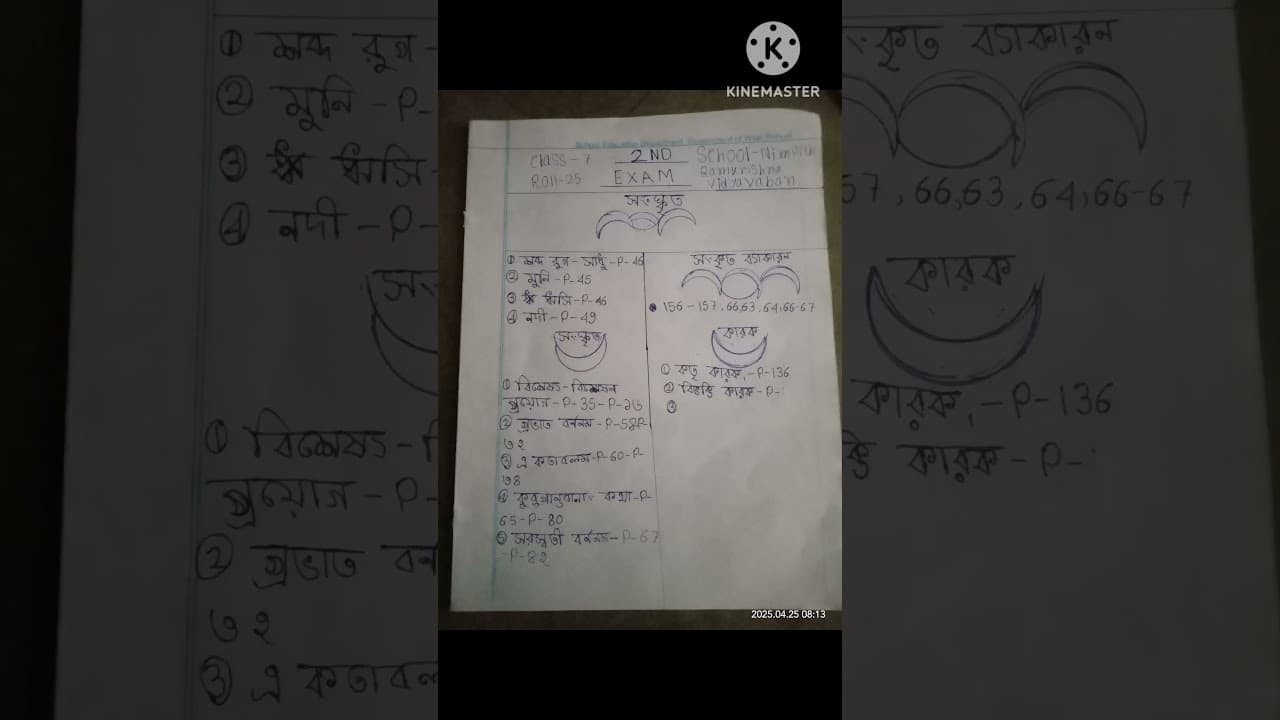 KINEMASTER
Class - 7
Roll-25
2ND
EXAM
School-Nimpith
Ramkrishna
Vidyavaban
সংস্কৃত
① শব্দ রুপ - সাধু - P - 46
② মুনি - P - 45
③ ঋষি - P - 46
④ নদী - P - 49
সংস্কৃত
① বিশেষ্য - বিশেষন
প্রয়োগ - P - 35 - P -
② প্রভাত বর্ননম - P - 58P -
৩২
③ এ কতাবলম - P - 60 - P -
④ কথা - P -
65 - P - 80
⑤ সরস্বতী বর্ননম - P - 67
- P - ৪২
সংস্কৃত ব্যাকারন
156 - 157, 66,63, 64, 66-67
কারক
① কতৃ কারক, - P - 136
② বিভক্তি কারক - P -
③
2025.04.25 08:13